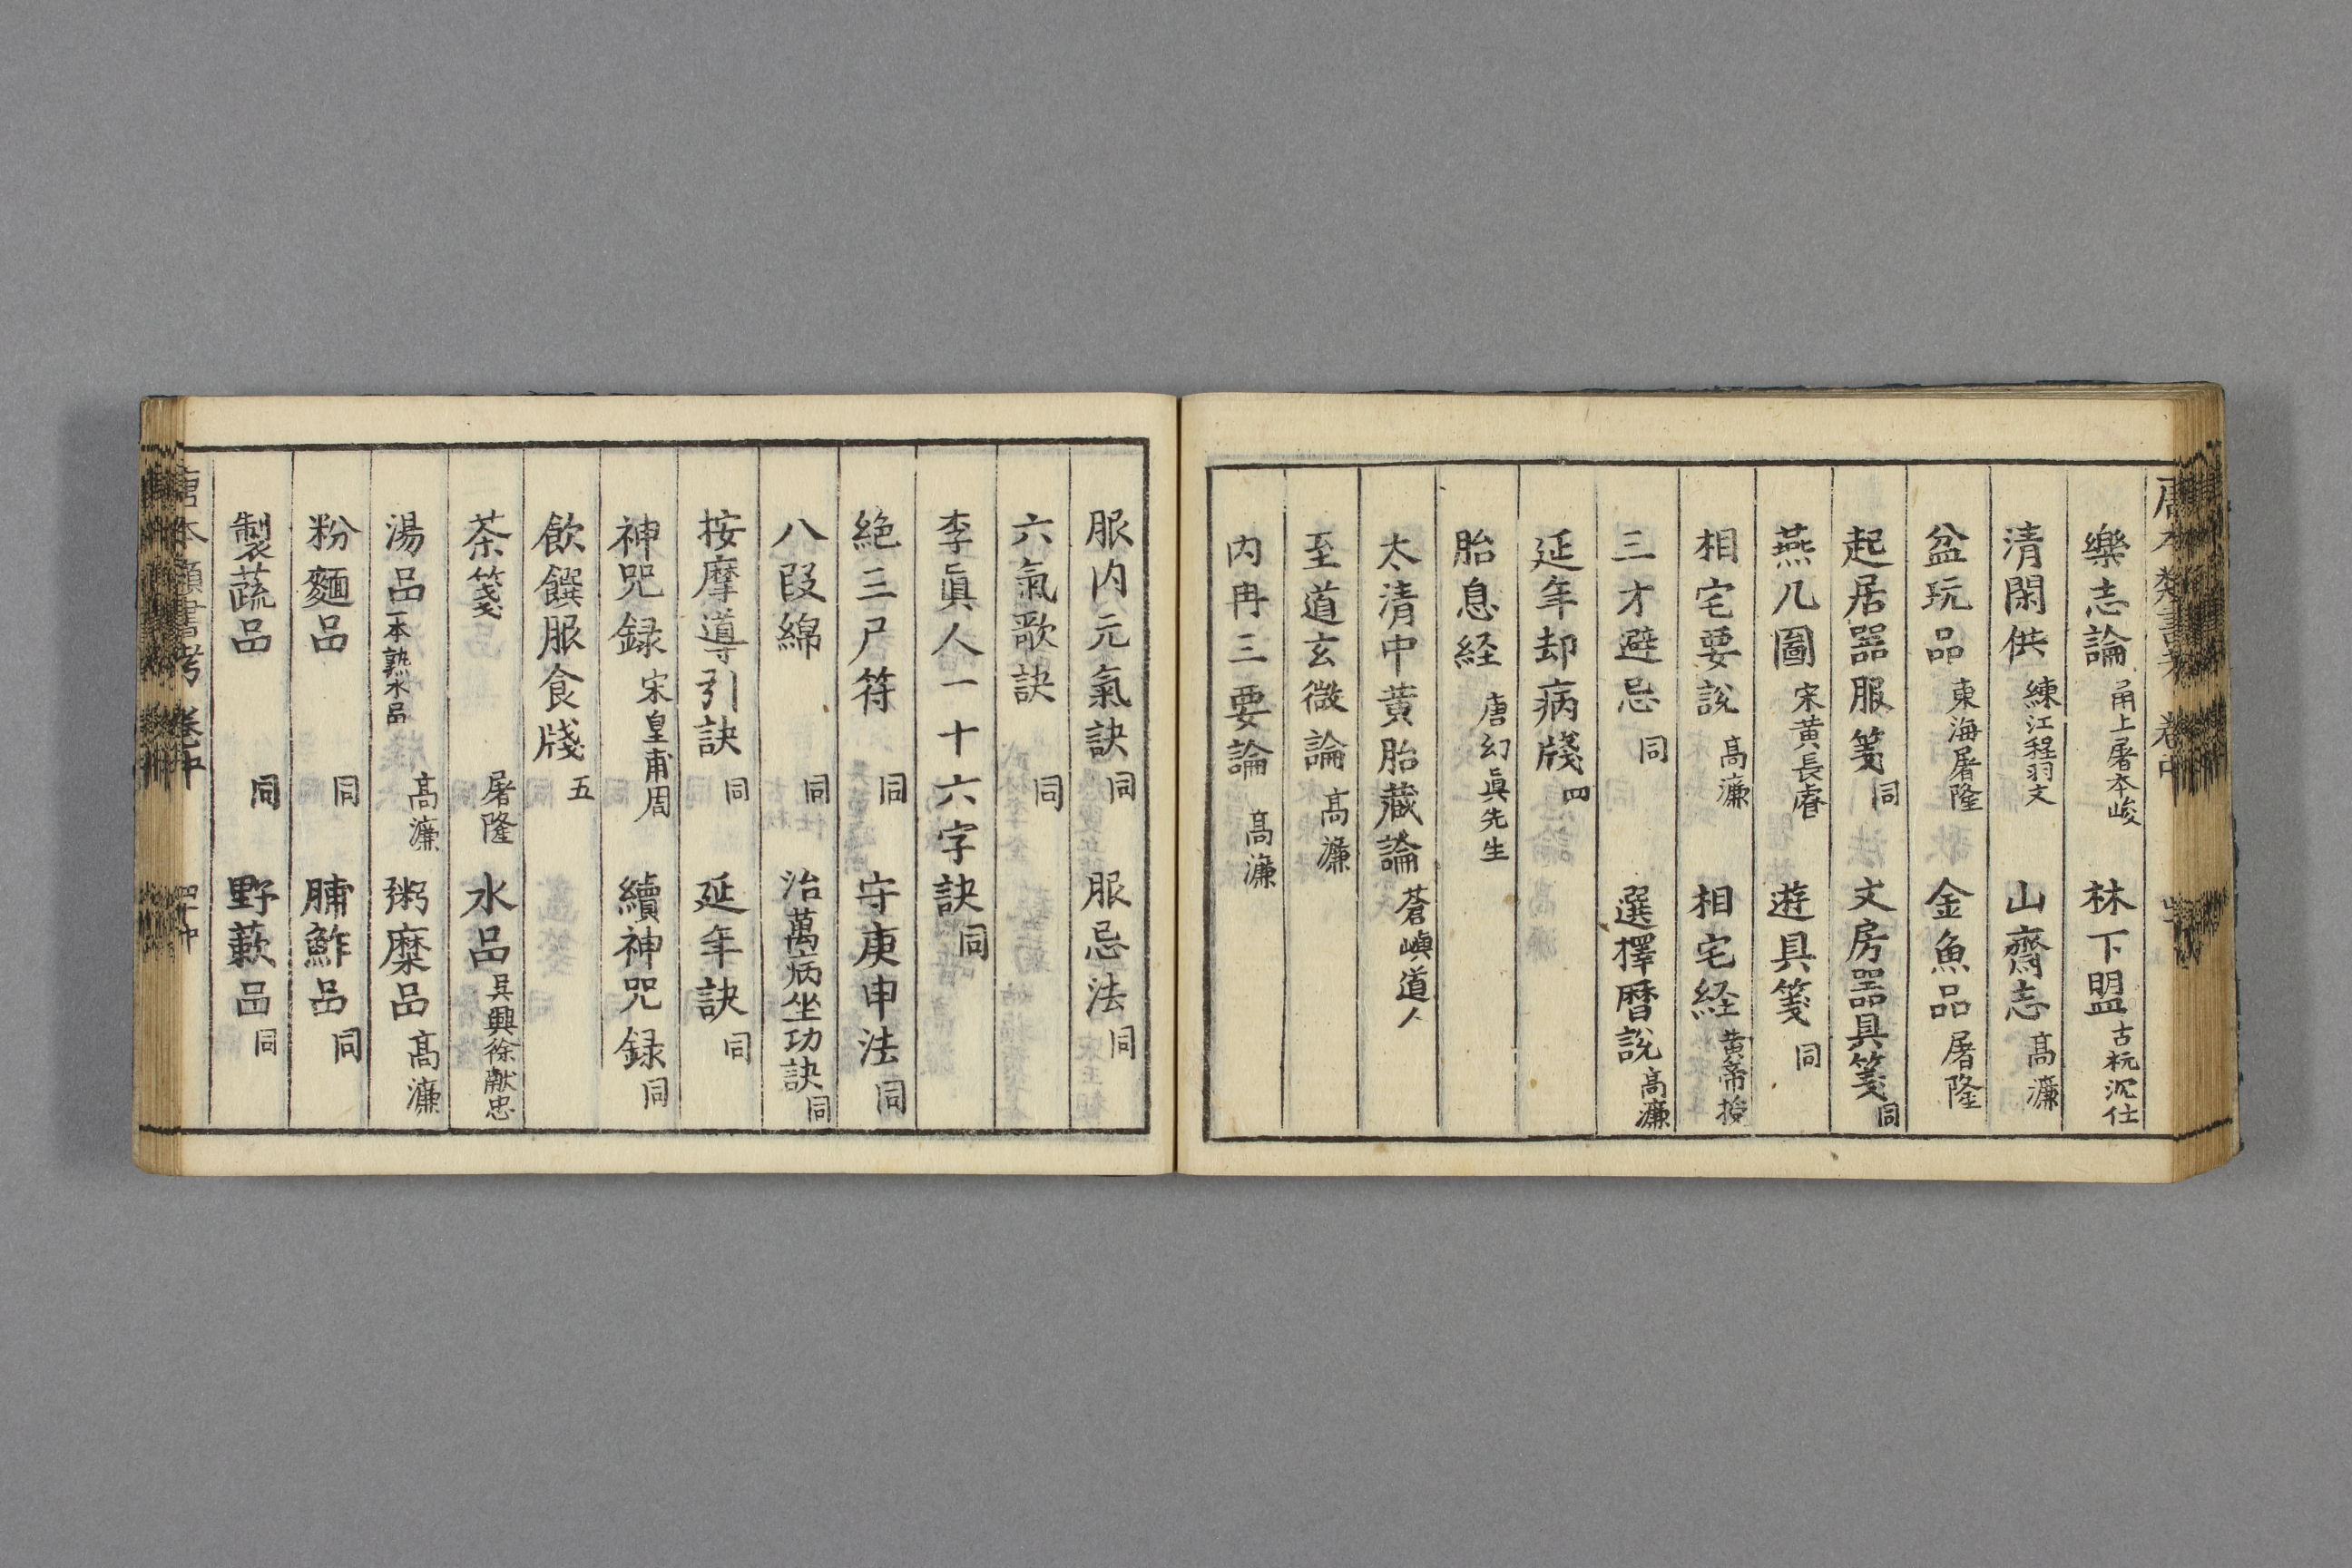 樂志論 甬上屠本畯 林下盟 古杭沉仕
清閑供 練江程羽文 山齋志 髙濂
盆玩品 東海屠隆 金魚品 屠隆
起居噐服箋 同 文房噐具箋 同
燕几圖 宋黄長睿 遊具箋 同
相宅要說 髙濂 相宅経 黄帝授
三才避忌 同 選擇暦説 髙濂
延年却病牋 四
胎息経 唐幻眞先生
太清中黄胎藏論 蒼嶼道人
至道玄微論 髙濂
内丹三要論 髙濂
服内元氣訣 同 服忌法 同
六氣歌訣 同
李眞人一十六字訣 同
絶三尸符 同 守庚申法 同
八段綿 同 治萬病坐功訣 同
按摩導引訣 同 延年訣 同
神咒録 宋皇甫周 續神咒録 同
飲饌服食牋 五
茶箋 屠隆 水品 吳興徐献忠
湯品 一本熟水品 髙濂 粥糜品 髙濂
粉麵品 同 脯鮓品 同
製蔬品 同 野蔌品 同
唐本類書考 卷中